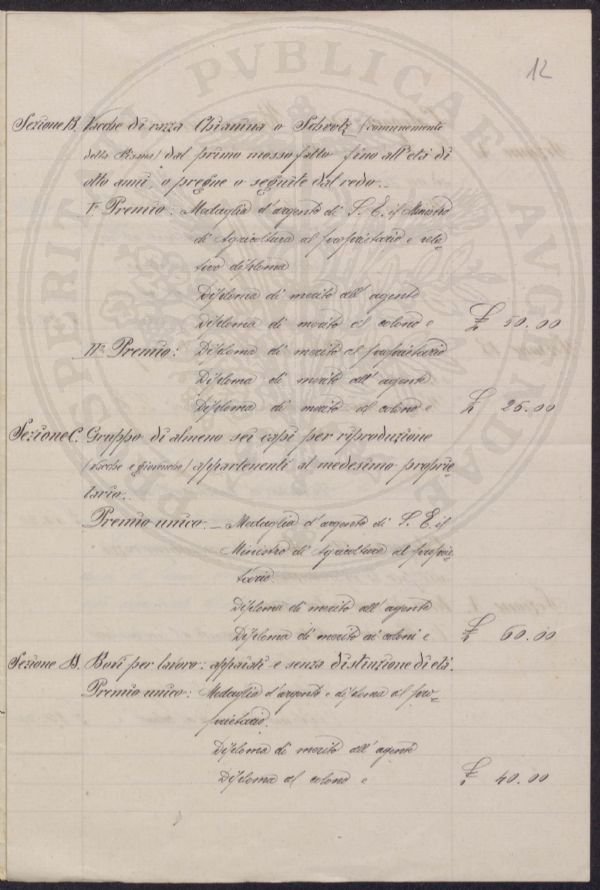 12
Sezione B. Vacche di razza Chianina o Schwotz (comunemente
detta Svizzera) dal primo mosso fatto fino all'età di
otto anni, o pregne o seguite dal redo.
I° Premio: Medaglia d'argento di S. E. il Ministro
di Agricoltura al proprietario e rela-
tivo diploma
Diploma di merito all'agente
Diploma di merito al colono e £ 50.00
II° Premio: Diploma di merito al proprietario
Diploma di merito all'agente
Diploma di merito al colono e £ 25.00
Sezione C. Gruppo di almeno sei capi per riproduzione
(vacche e giovenche) appartenenti al medesimo proprie-
tario.
Premio unico. — Medaglia d'argento di S. E. il
Ministro di Agricoltura al proprie-
tario.
Diploma di merito all'agente
Diploma di merito ai coloni e £ 60.00
Sezione D. Bovi per lavoro: appaiati e senza distinzione di età.
Premio unico: Medaglia d'argento e diploma al pro-
prietario.
Diploma di merito all'agente
Diploma al colono e £ 40.00